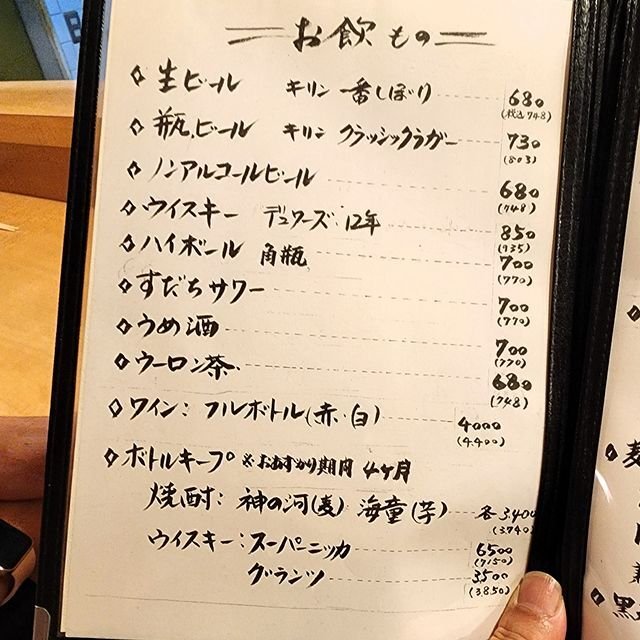 お飲もの
◇生ビール キリン 一番しぼり 680
(税込748)
◇瓶ビール キリン クラッシックラガー 730
(803)
◇ノンアルコールビール 680
(748)
◇ウイスキー デュワーズ 12年 850
(935)
◇ハイボール 角瓶 700
(770)
◇すだちサワー 700
(770)
◇うめ酒 700
(770)
◇ウーロン茶 680
(748)
◇ワイン：フルボトル(赤・白) 4000
(4.400)
◇ボトルキープ ※おあずかり期間 4ヶ月
焼酎：神の河(麦) 海童(芋) 各3,400
(3740)
ウイスキー：スーパーニッカ 6500
(7150)
グランツ 3500
(3.850)